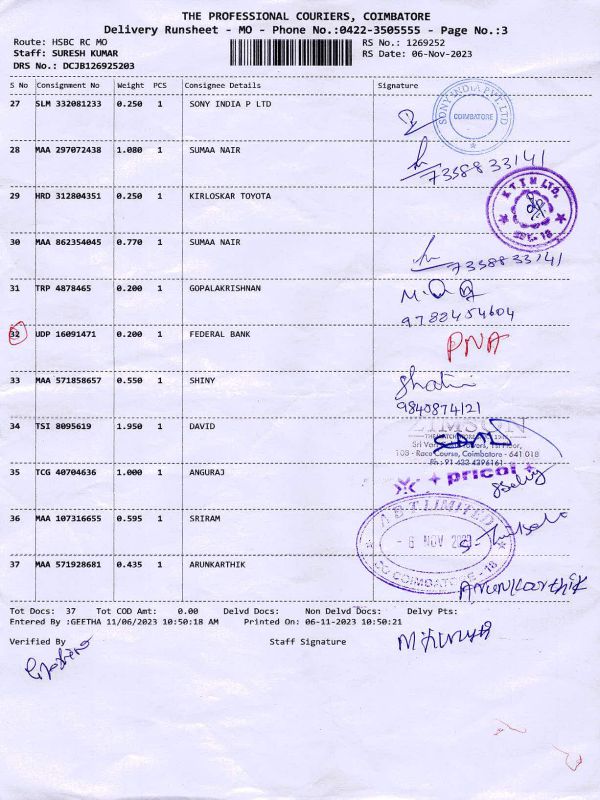 THE PROFESSIONAL COURIERS, COIMBATORE
Delivery Runsheet - MO - Phone No.:0422-3505555 - Page No.:3
Route: HSBC RC MO RS No.: 1269252
Staff: SURESH KUMAR RS Date: 06-Nov-2023
DRS No.: DCJB126925203
S No Consignment No Weight PCS Consignee Details Signature
27 SLM 332081233 0.250 1 SONY INDIA P LTD
SONY INDIA PVT. LTD
COIMBATORE
28 MAA 297072438 1.080 1 SUMAA NAIR
7358833141
29 HRD 312804351 0.250 1 KIRLOSKAR TOYOTA
30 MAA 862354045 0.770 1 SUMAA NAIR
7358833141
31 TRP 4878465 0.200 1 GOPALAKRISHNAN
9788454604
32 UDP 16091471 0.200 1 FEDERAL BANK
PNA
33 MAA 571858657 0.550 1 SHINY
9840874121
34 TSI 8095619 1.950 1 DAVID
ZIMSON
108 - Race Course, Coimbatore - 641 018
35 TCG 40704636 1.000 1 ANGURAJ
pricol
36 MAA 107316655 0.595 1 SRIRAM
A B T LIMITED
- 6 NOV 2023
COIMBATORE - 18
37 MAA 571928681 0.435 1 ARUNKARTHIK
Arunkarthik
Tot Docs: 37 Tot COD Amt: 0.00 Delvd Docs: Non Delvd Docs: Delvy Pts:
Entered By :GEETHA 11/06/2023 10:50:18 AM Printed On: 06-11-2023 10:50:21
Verified By Staff Signature